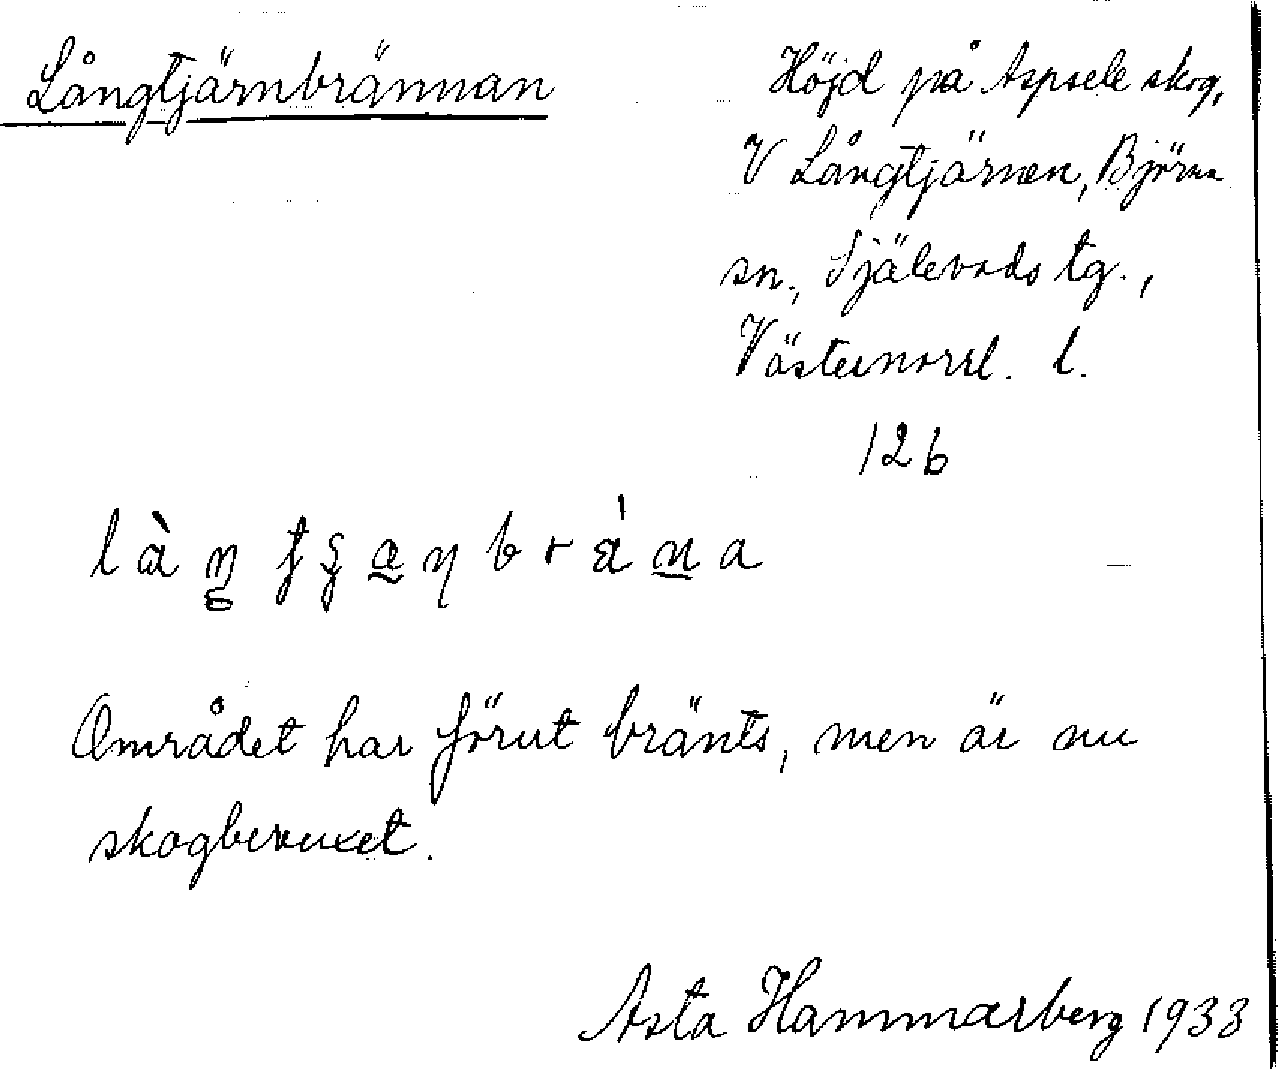 Långtjärnbrännan
Höjd på Aspsele skog,
V Långtjärnen, Björna
sn., Själevads tg.,
Västernorrl. l.
126
Området har förut bränts, men är nu
skogbevuxet.
Asta Hammarberg 1933